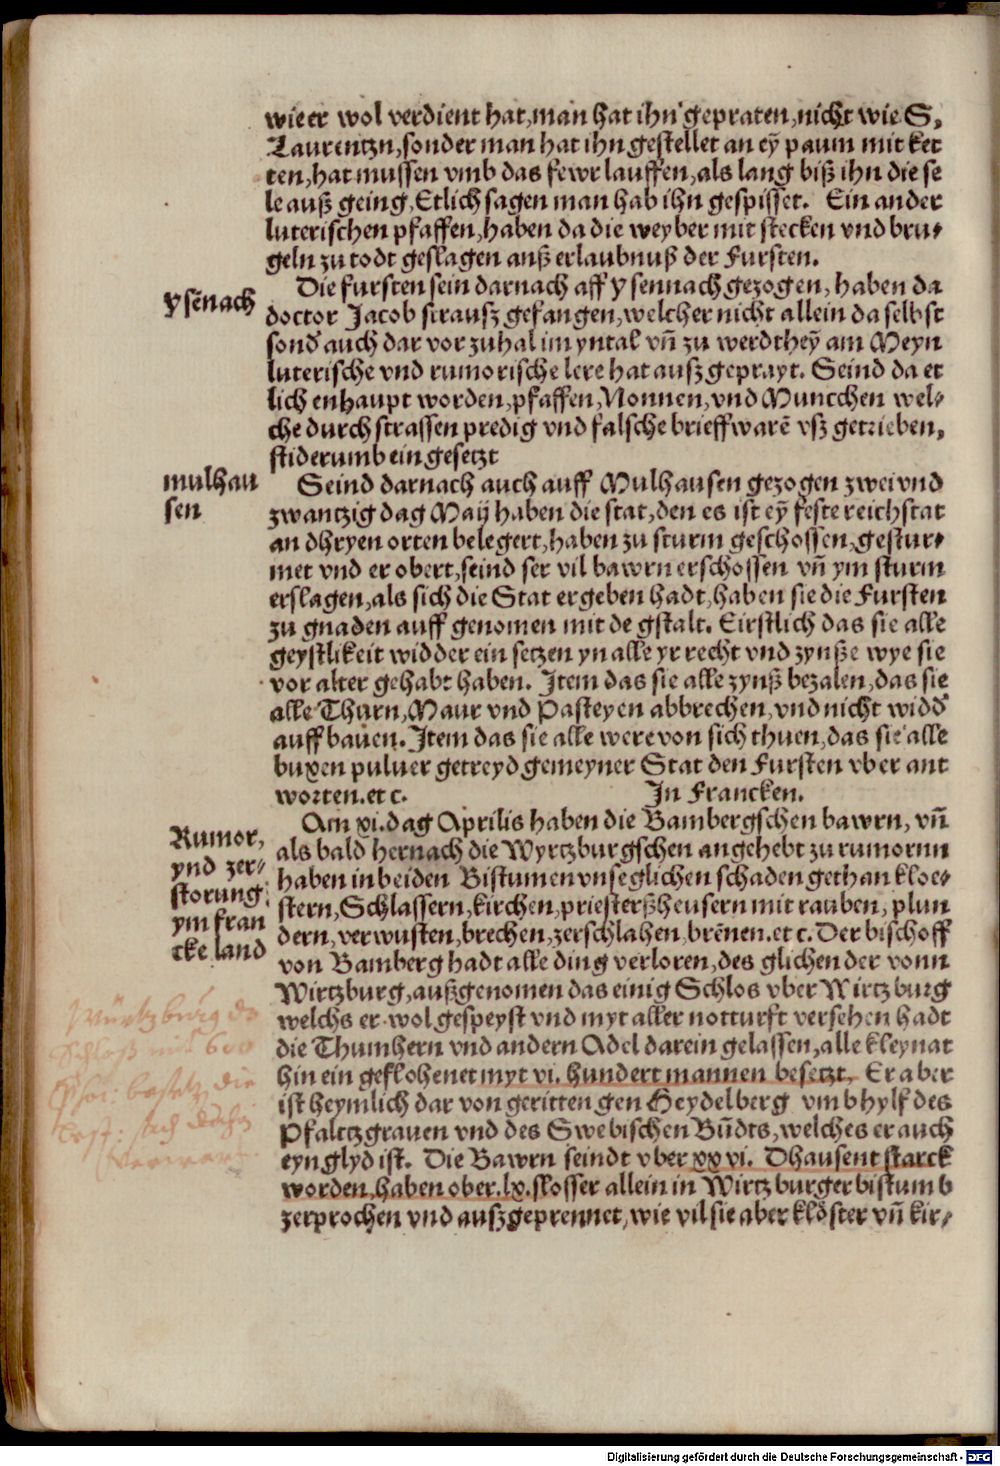 wie er wol verdient hat, man hat ihn gepraten, nicht wie S.
Laurentzn, sonder man hat ihn gestellet an eӱ paum mit ket
ten, hat mussen vmb das fewr lauffen, als lang biß ihn die se
le auß geing, Etlich sagen man hab ihn gespisset. Ein ander
luterischen pfaffen, haben da die weyber mit stecken vnd bru-
geln zu todt geslagen auß erlaubnuß der Fursten.
ysēnach
Die fursten sein darnach aff ysennach gezogen, haben da
doctor Jacob strausz gefangen, welcher nicht allein da selbst
sond' auch dar vor zu hal im yntal vn̄ zu werdtheӱ am Meyn
luterische vnd rumorische lere hat ausz geprayt. Seind da et
lich enhaupt worden, pfaffen, Nonnen, vnd Muncchen wel-
che durch strassen predig vnd falsche brieff warē vsz getrieben,
stiderumb ein gesetzt
mulhau
sen
Seind darnach auch auff Mulhausen gezogen zwei vnd
zwantzig dag Maij haben die stat, den es ist eӱ feste reichstat
an dhryen orten belegert, haben zu sturm geschossen, gestur-
met vnd er obert, seind ser vil bawrn erschossen vn̄ ym sturm
erslagen, als sich die Stat ergeben hadt, haben sie die Fursten
zu gnaden auff genomen mit de gstalt. Eirstlich das sie alle
geystlikeit widder ein setzen yn alle yr recht vnd zynße wye sie
vor alter gehabt haben. Item das sie alle zynß bezalen, das sie
alle Thurn, Maur vnd Pasteyen abbrechen, vnd nicht widd'
auff bauen. Item das sie alle were von sich thuen, das sie alle
buxen puluer getreyd gemeyner Stat den Fursten vber ant
worten. et c. In Francken.
Rumor,
ynd zer-
storung
ym fran
cke land
Am xi. dag Aprilis haben die Bambergschen bawrn, vn̄
als bald hernach die Wyrtzburgschen angehebt zu rumornn
haben in beiden Bistumen vnseglichen schaden gethan kloe-
stern, Schlassern, kirchen, priesterßheusern mit rauben, plun
dern, verwusten, brechen, zerschlahen, brēnen. et c. Der bischoff
von Bamberg hadt alle ding verloren, des glichen der vonn
Wirtzburg, außgenomen das einig Schlos vber Wirtzburg
welchs er wol gespeyst vnd myt aller notturft versehen hadt
die Thumhern vnd andern Adel darein gelassen, alle kleynat
hin ein geflohenet myt vi. hundert mannen besetzt, Er aber
ist heymlich dar von geritten gen Heydelberg vmb hylf des
Pfaltzgrauen vnd des Swebischen Bu̇dts, welches er auch
eyn glyd ist. Die Bawrn seindt vber xxvi. Dhausent starck
worden, haben ober. lx. slosser allein in Wirtzburger bistumb
zerprochen vnd ausz geprennet, wie vil sie aber kloͤster vn̄ kir-
Würtzburg
Schloß mit 600
Digitalisierung gefördert durch die Deutsche Forschungsgemeinschaft - DFG